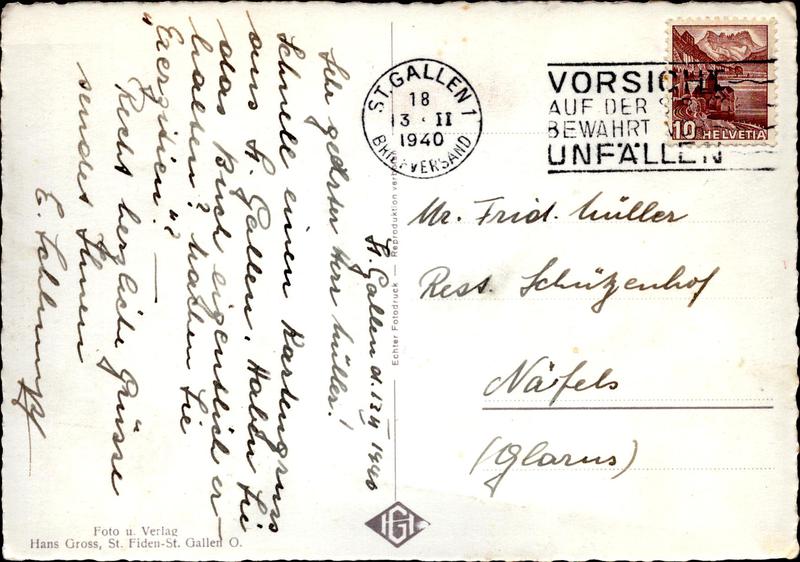 St. Gallen d. 13.II 1940
Sehr geehrter Herr Müller!
Schnelle einen Kartengruss
aus St. Gallen. Haben Sie
das Buch eigentlich er-
halten? Machen Sie
"Exerzitien"?
Recht herzliche Grüsse
sendet Ihnen
E. Schlumpf
Foto u. Verlag
Hans Gross, St. Fiden-St. Gallen O.
Echter Fotodruck — Reproduktion verb
HGF
ST. GALLEN 1
18
13 · II
1940
BRIEFVERSAND
VORSICHT
AUF DER S
BEWAHRT
UNFÄLLEN
10 HELVETIA
Mr. Frid. Müller
Rest. Schützenhof
Näfels
(Glarus)